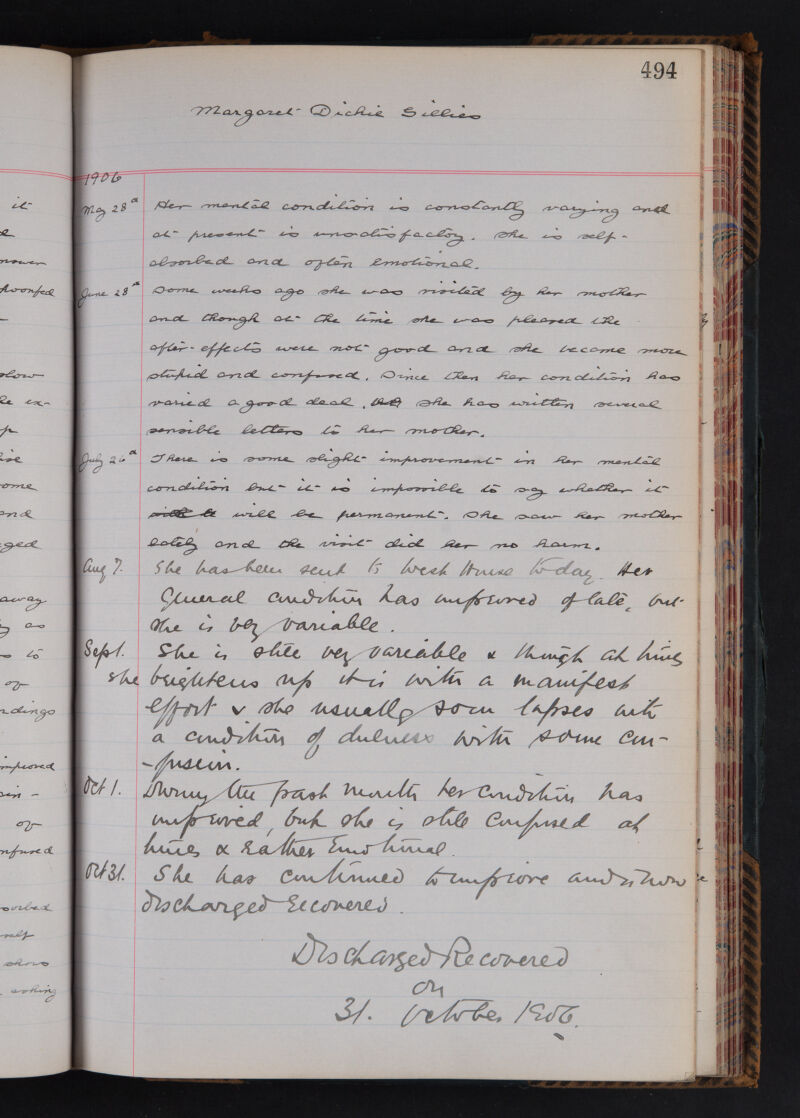 494
Margaret Dickie Gillies
1906
May 28th Her mental condition is constantly varying and
at present is unsatisfactory. She is self-
absorbed and often emotional.
June 28th Some weeks ago she was visited by her mother
and though at the time she was pleased the
after-effects were not good and she became more
stupid and confused. Since then her condition has
varied a good deal. She has written several
sensible letters to her mother.
July 26th There is some slight improvement in her mental
condition but it is impossible to say whether it
will be permanent. She saw her mother
lately and the visit did her no harm.
Aug 7. She has been sent to West House today. Her
General condition has improved of late, but
she is very variable.
Sept 1. She is still very variable & though at times
she brightens up it is with a manifest
effort & she usually soon lapses into
a condition of dulness with some con-
-fusion.
Oct 1. During the past month her condition has
improved, but she is still confused at
times & rather Emotional.
Oct 31. She has continued to improve and is now
discharged recovered.
Discharged Recovered
on
31. October 1906.
it
answer
slow
he ex-
some
and
away
as
to
of
improved
of
confused
absorbed
self
shows
asking